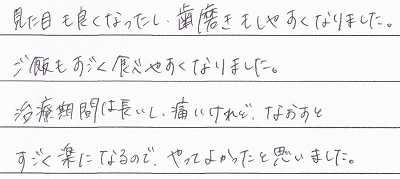 見た目も良くなったし、歯磨きもしやすくなりました。
ご飯もすごく食べやすくなりました。
治療期間は長いし、痛いけれど、なおすと
すごく楽になるので、やってよかったと思いました。